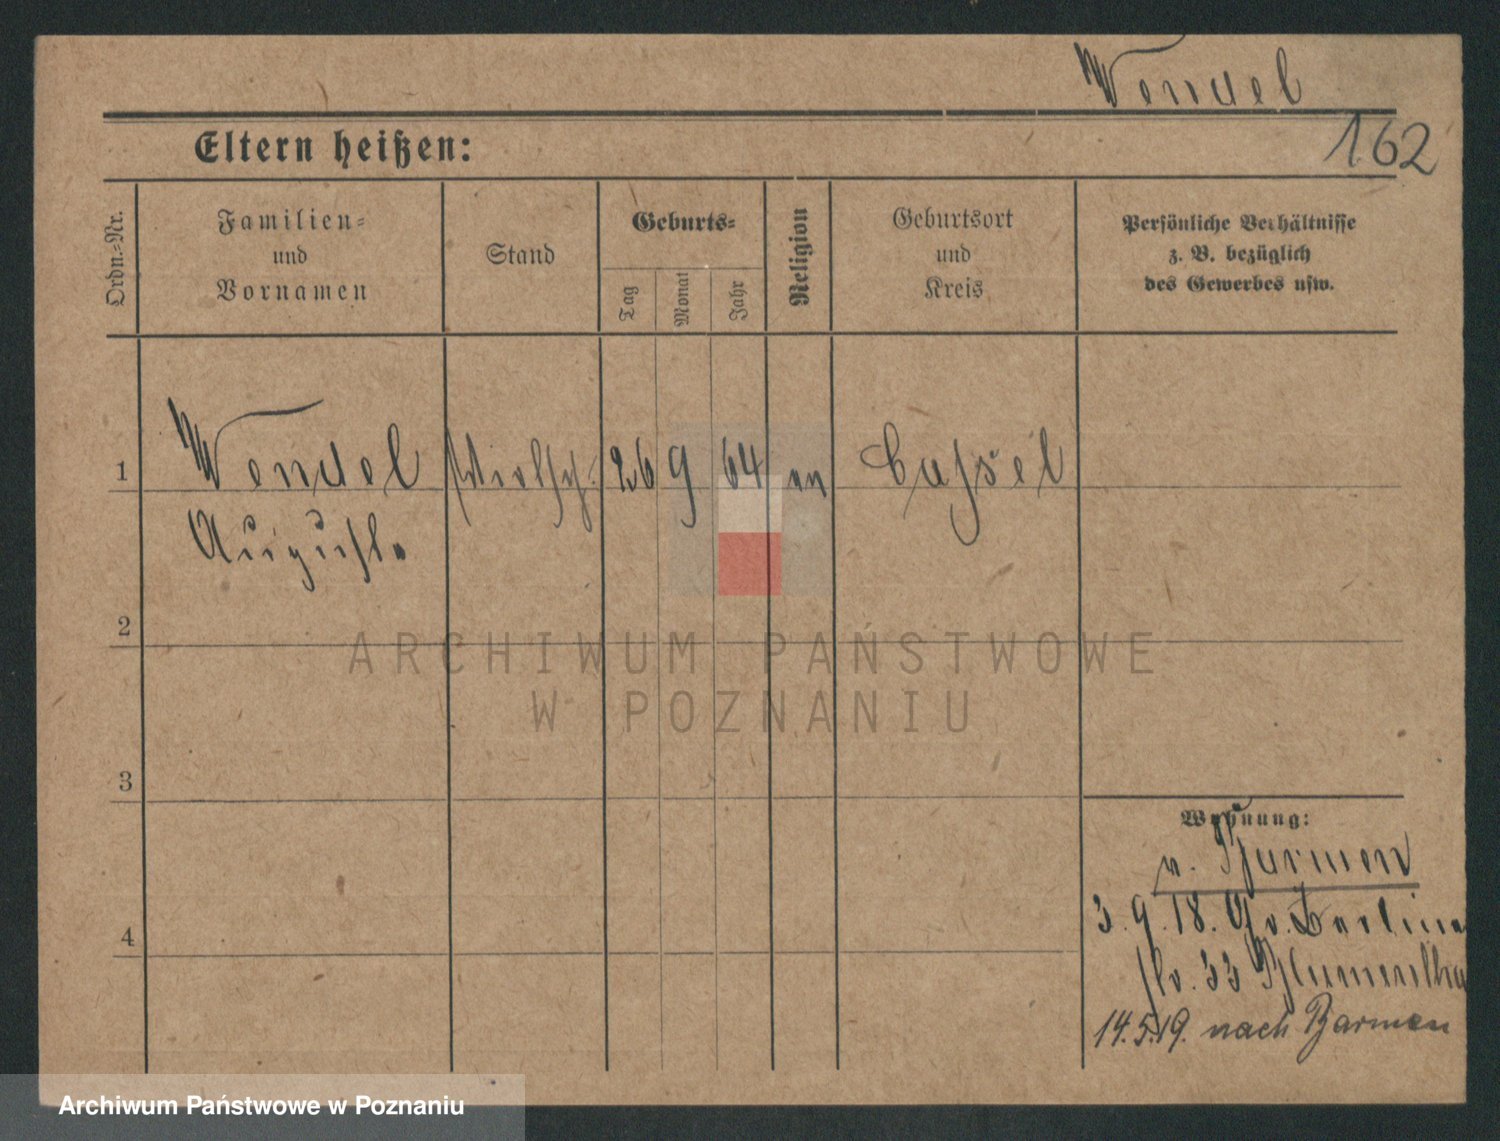 Wendel
162
Eltern heißen:
Ordn.-Nr.
Familien-
und
Vornamen
Stand
Geburts-
Tag
Monat
Jahr
Religion
Geburtsort
und
Kreis
Persönliche Verhältnisse
z. B. bezüglich
des Gewerbes usw.
1
Wendel
Wirtsch.
26 9 64
Cassel
Auguste
2
ARCHIWUM PAŃSTWOWE
W POZNANIU
3
Wohnung:
v. Barmen
4
3.9.18. Gr. Berliner
str. 33 Blumentha
14.5.19. nach Barmen
Archiwum Państwowe w Poznaniu